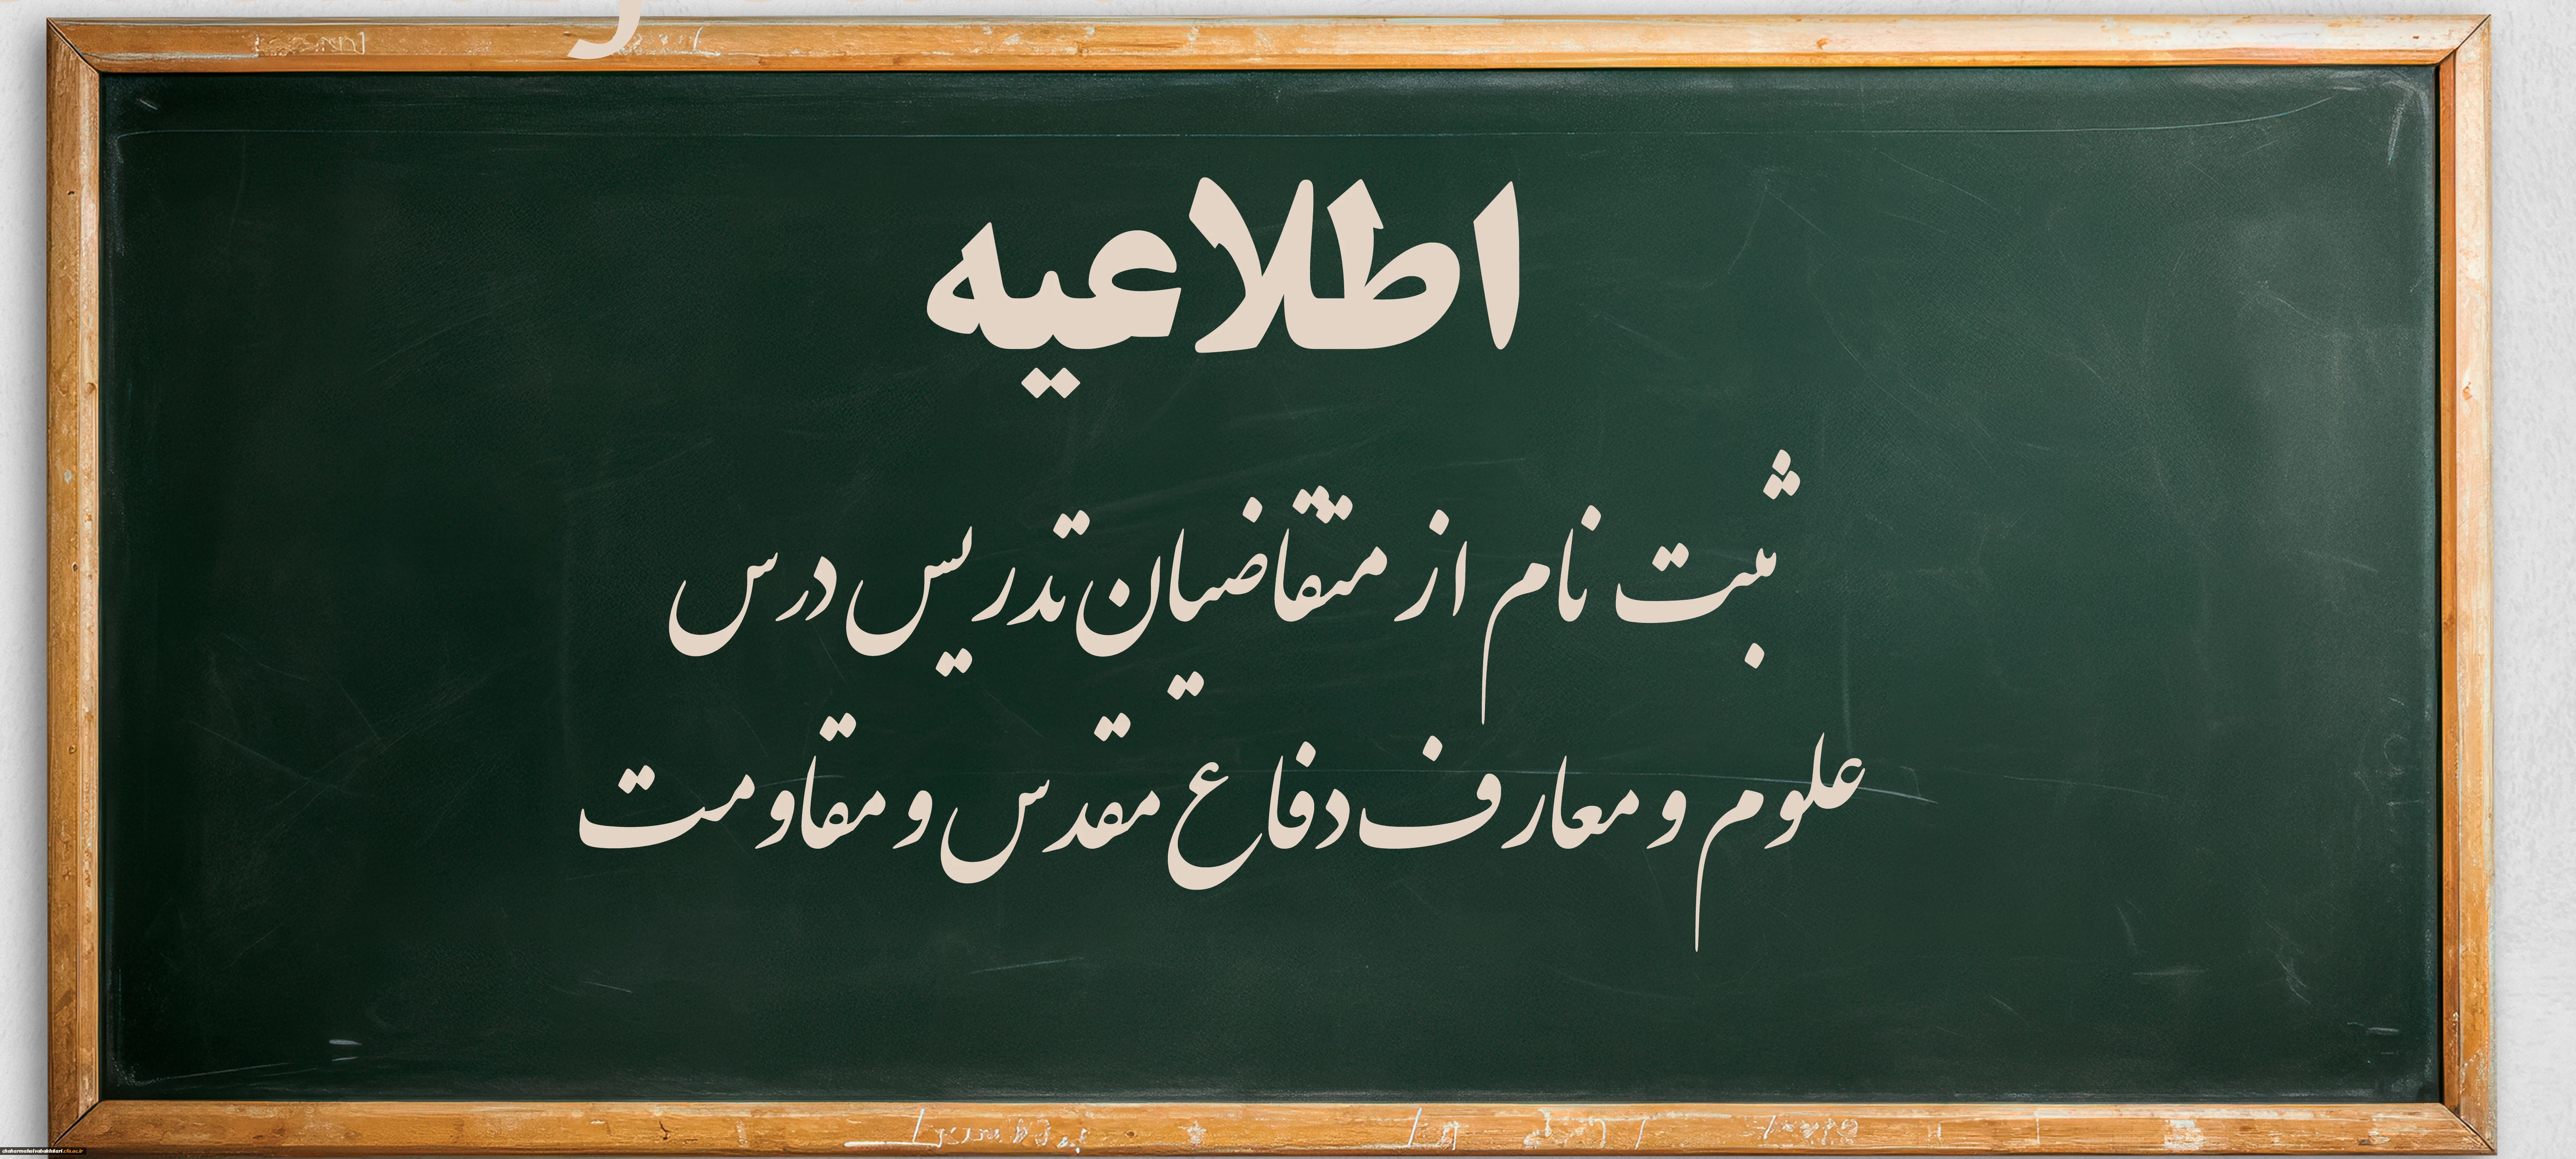 اطلاعیه
ثبت نام از متقاضیان تدریس درس
علوم و معارف دفاع مقدس و مقاومت